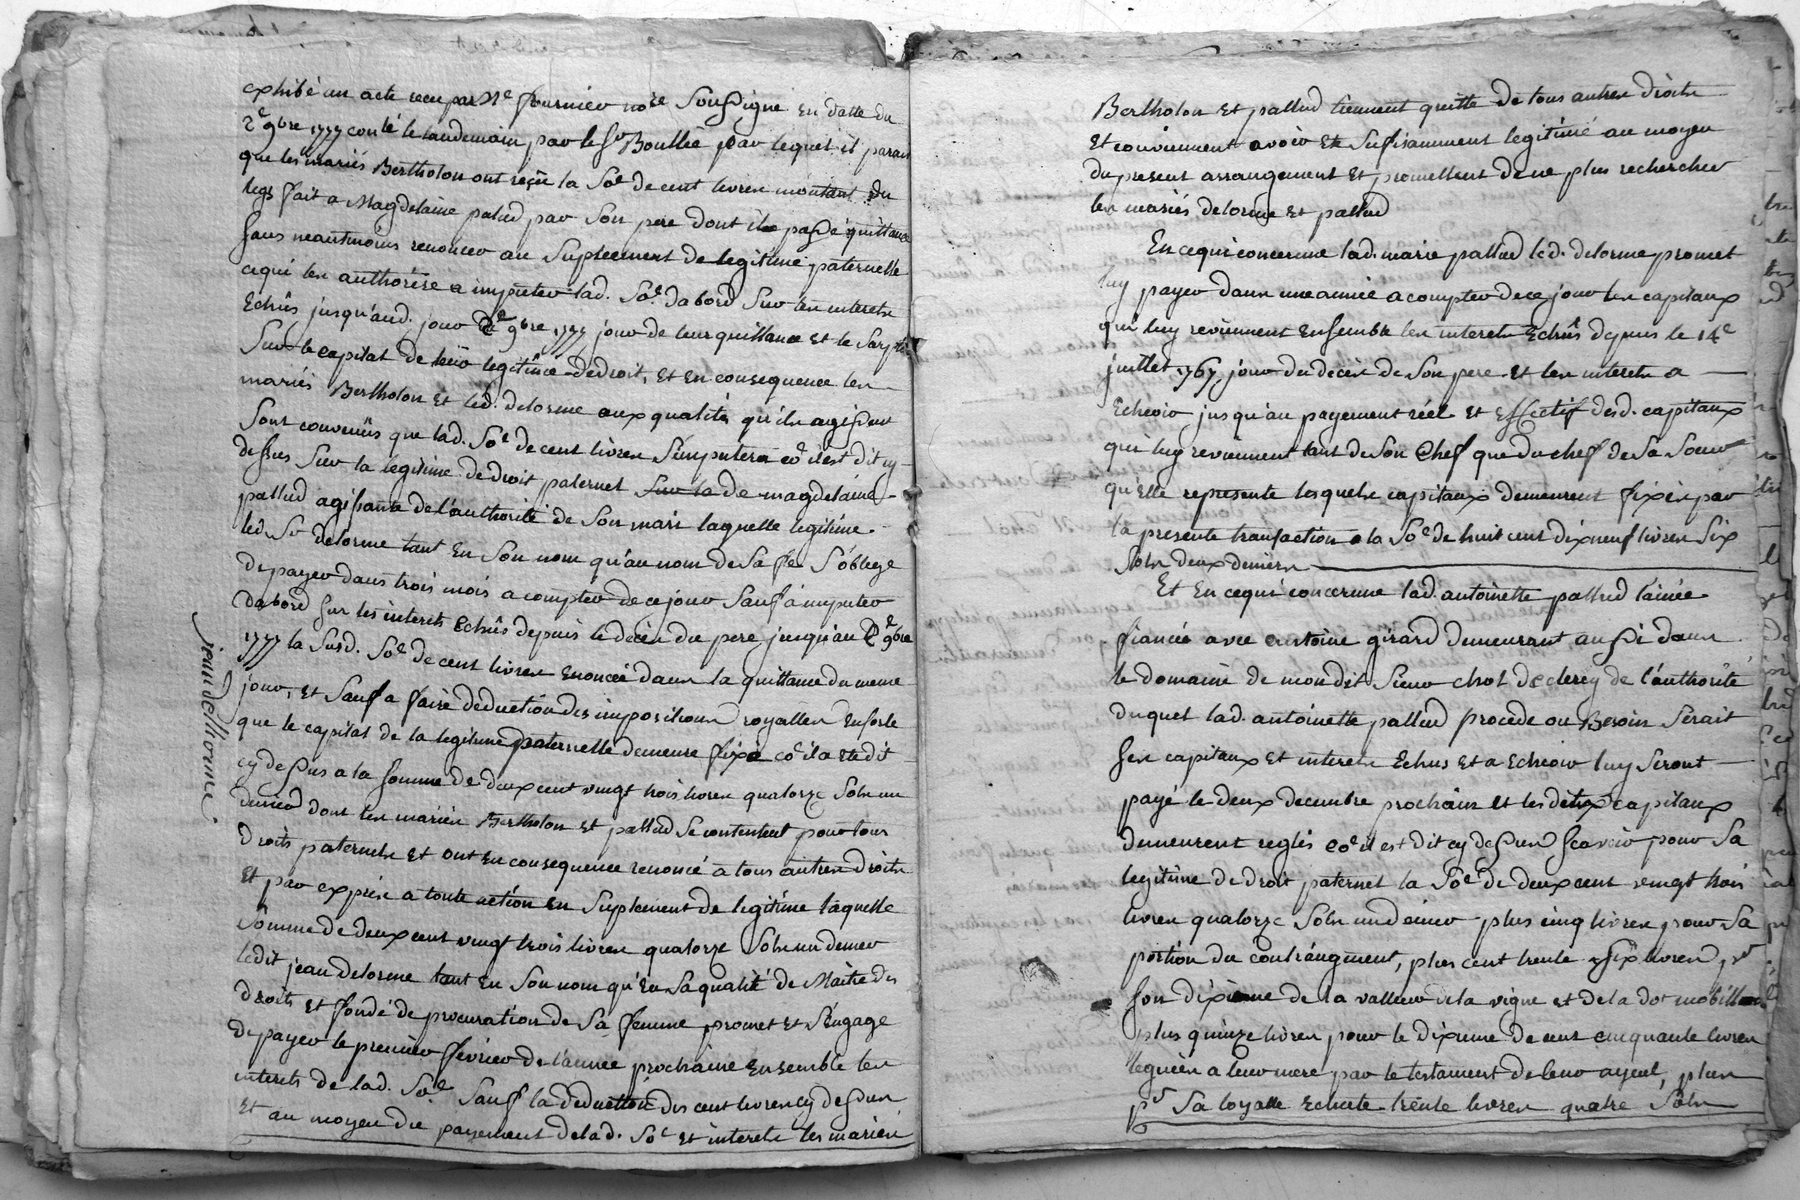 exhibé un acte recu par Me fournier nore Soussigné En datte du
2e 9bre 1777 conlé le landemain par le Sr Boullée par lequel il parait
que les mariés Bertholon ont reçû la Soe de cent livres montant du
legs fait a Magdelaine palud par Son pere dont ils passé quittance
Sans neantmoins renoncer au Suplement de legitime paternelle
ce qui les authorise a imputer lad. Soe dabord Sur les interets
Echûs jusqu'aud. jour 2e 9bre 1777 jour de leur quittance et le Surplus
Sur le capital de leur legitime de droit, Et En consequence les
mariés Bertholon Et led. delorme aux qualités qu'ils agissent
Sont convenüs que lad. Soe de cent livres S'imputera coe il est dit cy
dessus Sur la legitime de droit paternel Sur la de magdelaine
pallud agissante de l'authorité de Son mari laquelle legitime
led. Sr delorme tant En Son nom qu'au nom de Sa fe S'oblige
de payer dans trois mois a compter de ce jour Sauf a imputer
dabord Sur les interets Echûs depuis le decès du pere jusqu'au 2e 9bre
1777 la Susd. Soe de cent livres Enoncée dans la quittance du meme
jour, Et Sauf a faire deduction des impositions royalles Ensorte
que le capital de la legitime paternelle demeure fixé coe il a Eté dit
cy dessus a la Somme de deux cent vingt trois livres quatorze Sols un
denier dont les mariés Bertholon Et pallud Se contentent pour tous
droits paternels Et ont En consequence renoncé a tous autres droits
Et par exprès a toute action en Suplement de legitime laquelle
Somme de deux cent vingt trois livres quatorze Sols un denier
ledit jean delorme tant En Son nom qu'En Sa qualité de Maitre des
droits Et fondé de procuration de Sa femme promet Et S'engage
de payer le premier fevrier de l'année prochaine Ensemble les
interets de lad. Soe Sauf la deduction des cent livres cy dessus
Et au moyen du payement de lad. Soe Et interets les mariés
jean dellorme
Bertholon Et pallud tiennent quitte de tous autres droits
Et conviennent avoir Eté Sufisamment legitimé au moyen
du present arrangement Et promettent de ne plus rechercher
les mariés delorme Et pallud
En ce qui concerne lad. marie pallud led. delorme promet
luy payer dans une année a compter de ce jour les capitaux
qui luy reviennent Ensemble les interets Echûs depuis le 14e
juillet 1767 jour du decès de Son pere Et les interets a
Echeoir jusqu'au payement réel Et Effectif desd. capitaux
qui luy reviennent tant de Son Chef que du chef de Sa Soeur
qu'elle represente lesquels capitaux demeurent fixés par
la presente transaction a la Soe de huit cent dix neuf livres Six
Sols deux deniers
Et En ce qui concerne lad. antoinette pallud l'ainée
fiancée avec antoine girard demeurant aussi dans
le domaine de mondit Sieur chol de clercy de l'authorité
duquel lad. antoinette pallud procede ou Besoin Serait
Ses capitaux Et interets Echus Et a Echeoir luy Seront
payé le deux decembre prochain Et lesdits capitaux
demeurent reglés coe il est dit cy dessus Scavoir pour Sa
legitime de droit paternel la Soe de deux cent vingt trois
livres quatorze Sols un denier plus cinq livres pour Sa
portion du contrangment, plus cent trente Six livres pr
Son dixième de la valleur de la vigne et de la dot mobiliaire
plus quinze livres pour le dixieme de cent cinquante livres
leguées a leur mere par le testament de leur ayeul, plus
pr Sa loyalle Echute trente livres quatre Sols